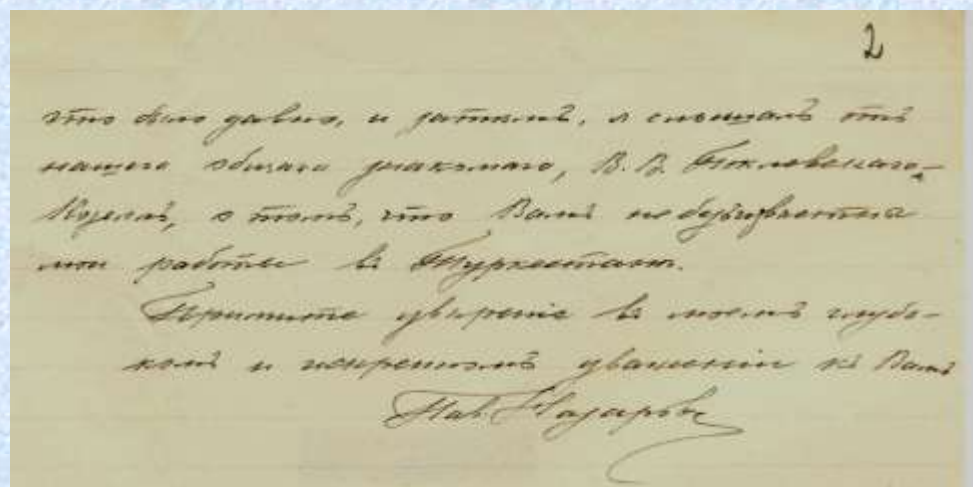 2
что было давно, и затѣмъ, я слышалъ отъ
нашего общаго знакомаго, В. В. Поклевскаго-
Козеллъ, о томъ, что Вамъ небезызвѣстны
мои работы въ Туркестанѣ.
Примите увѣреніе въ моемъ глубо-
комъ и искреннемъ уваженіи къ Вамъ
Пав. Назаровъ